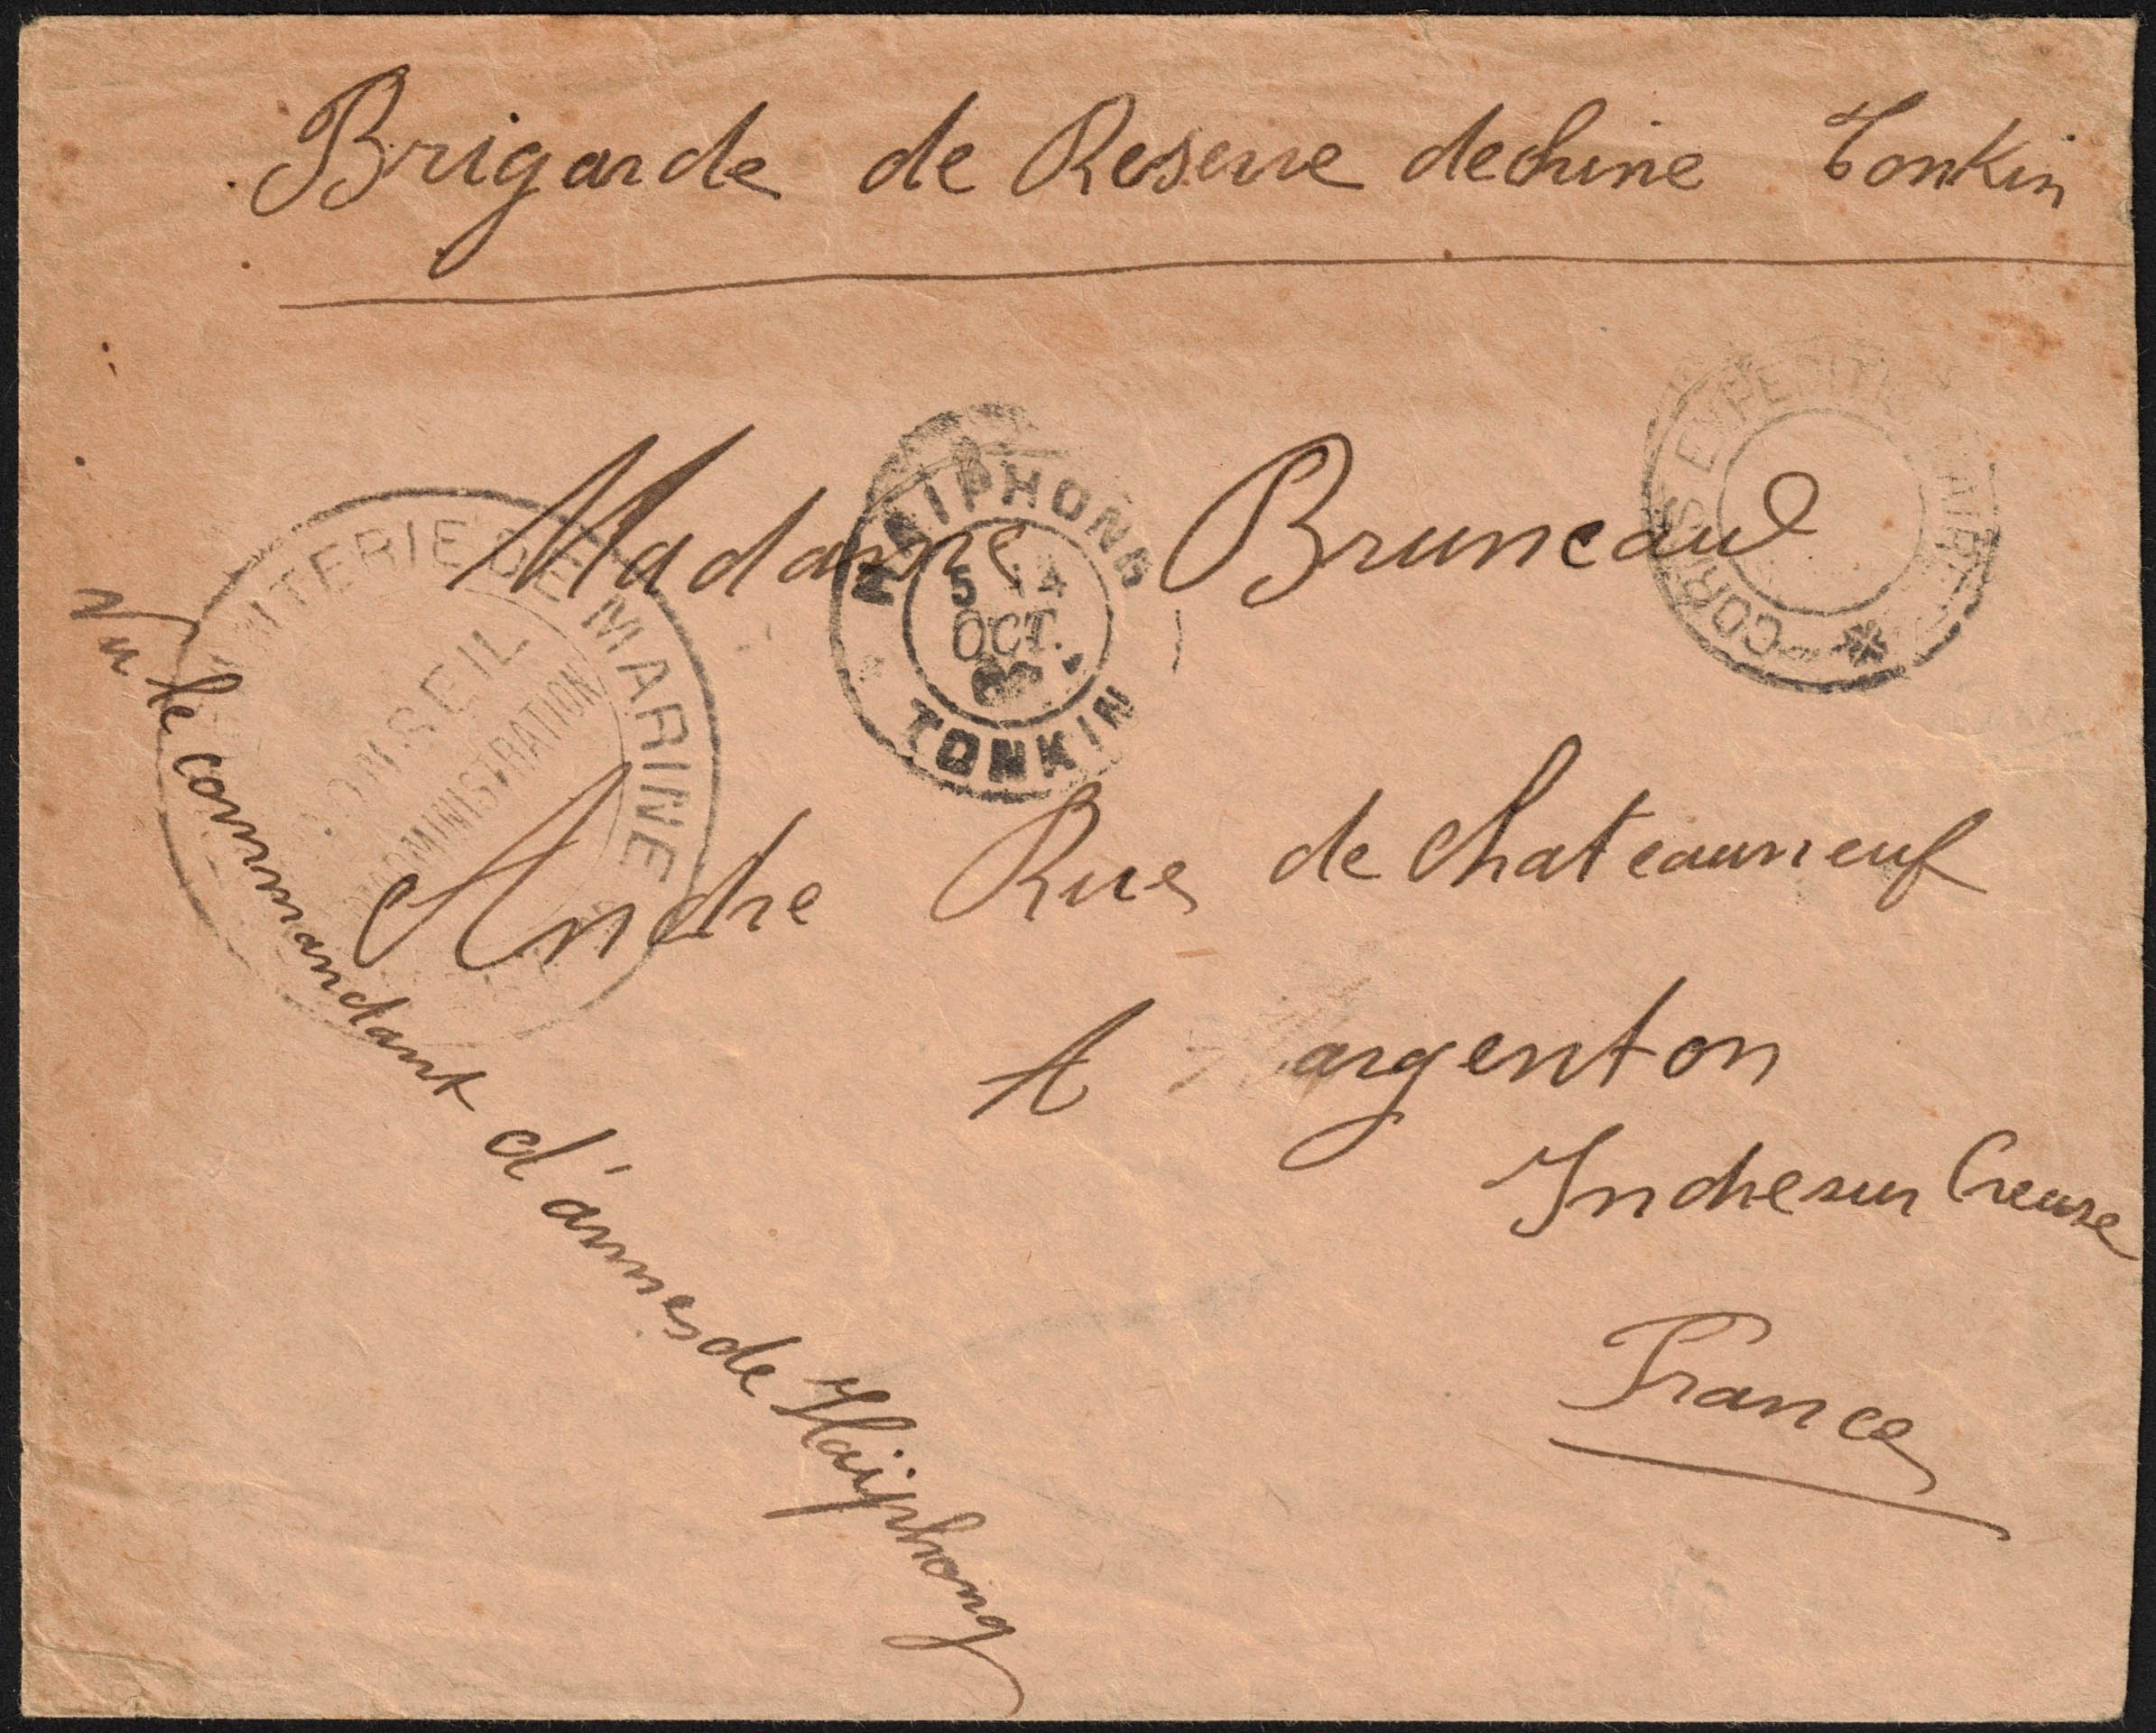 Brigarde de Reserve dechine Tonkin
CORPS EXPEDITIONNAIRE
HAIPHONG
5 14
OCT.
TONKIN
Madame Bruneaud
INFANTERIE DE MARINE
CONSEIL
D'ADMINISTRATION
Andre Rue de Chateauneuf
A argenton
Indre sur Creuse
France
Vu le commandant d'armes de Haiphong